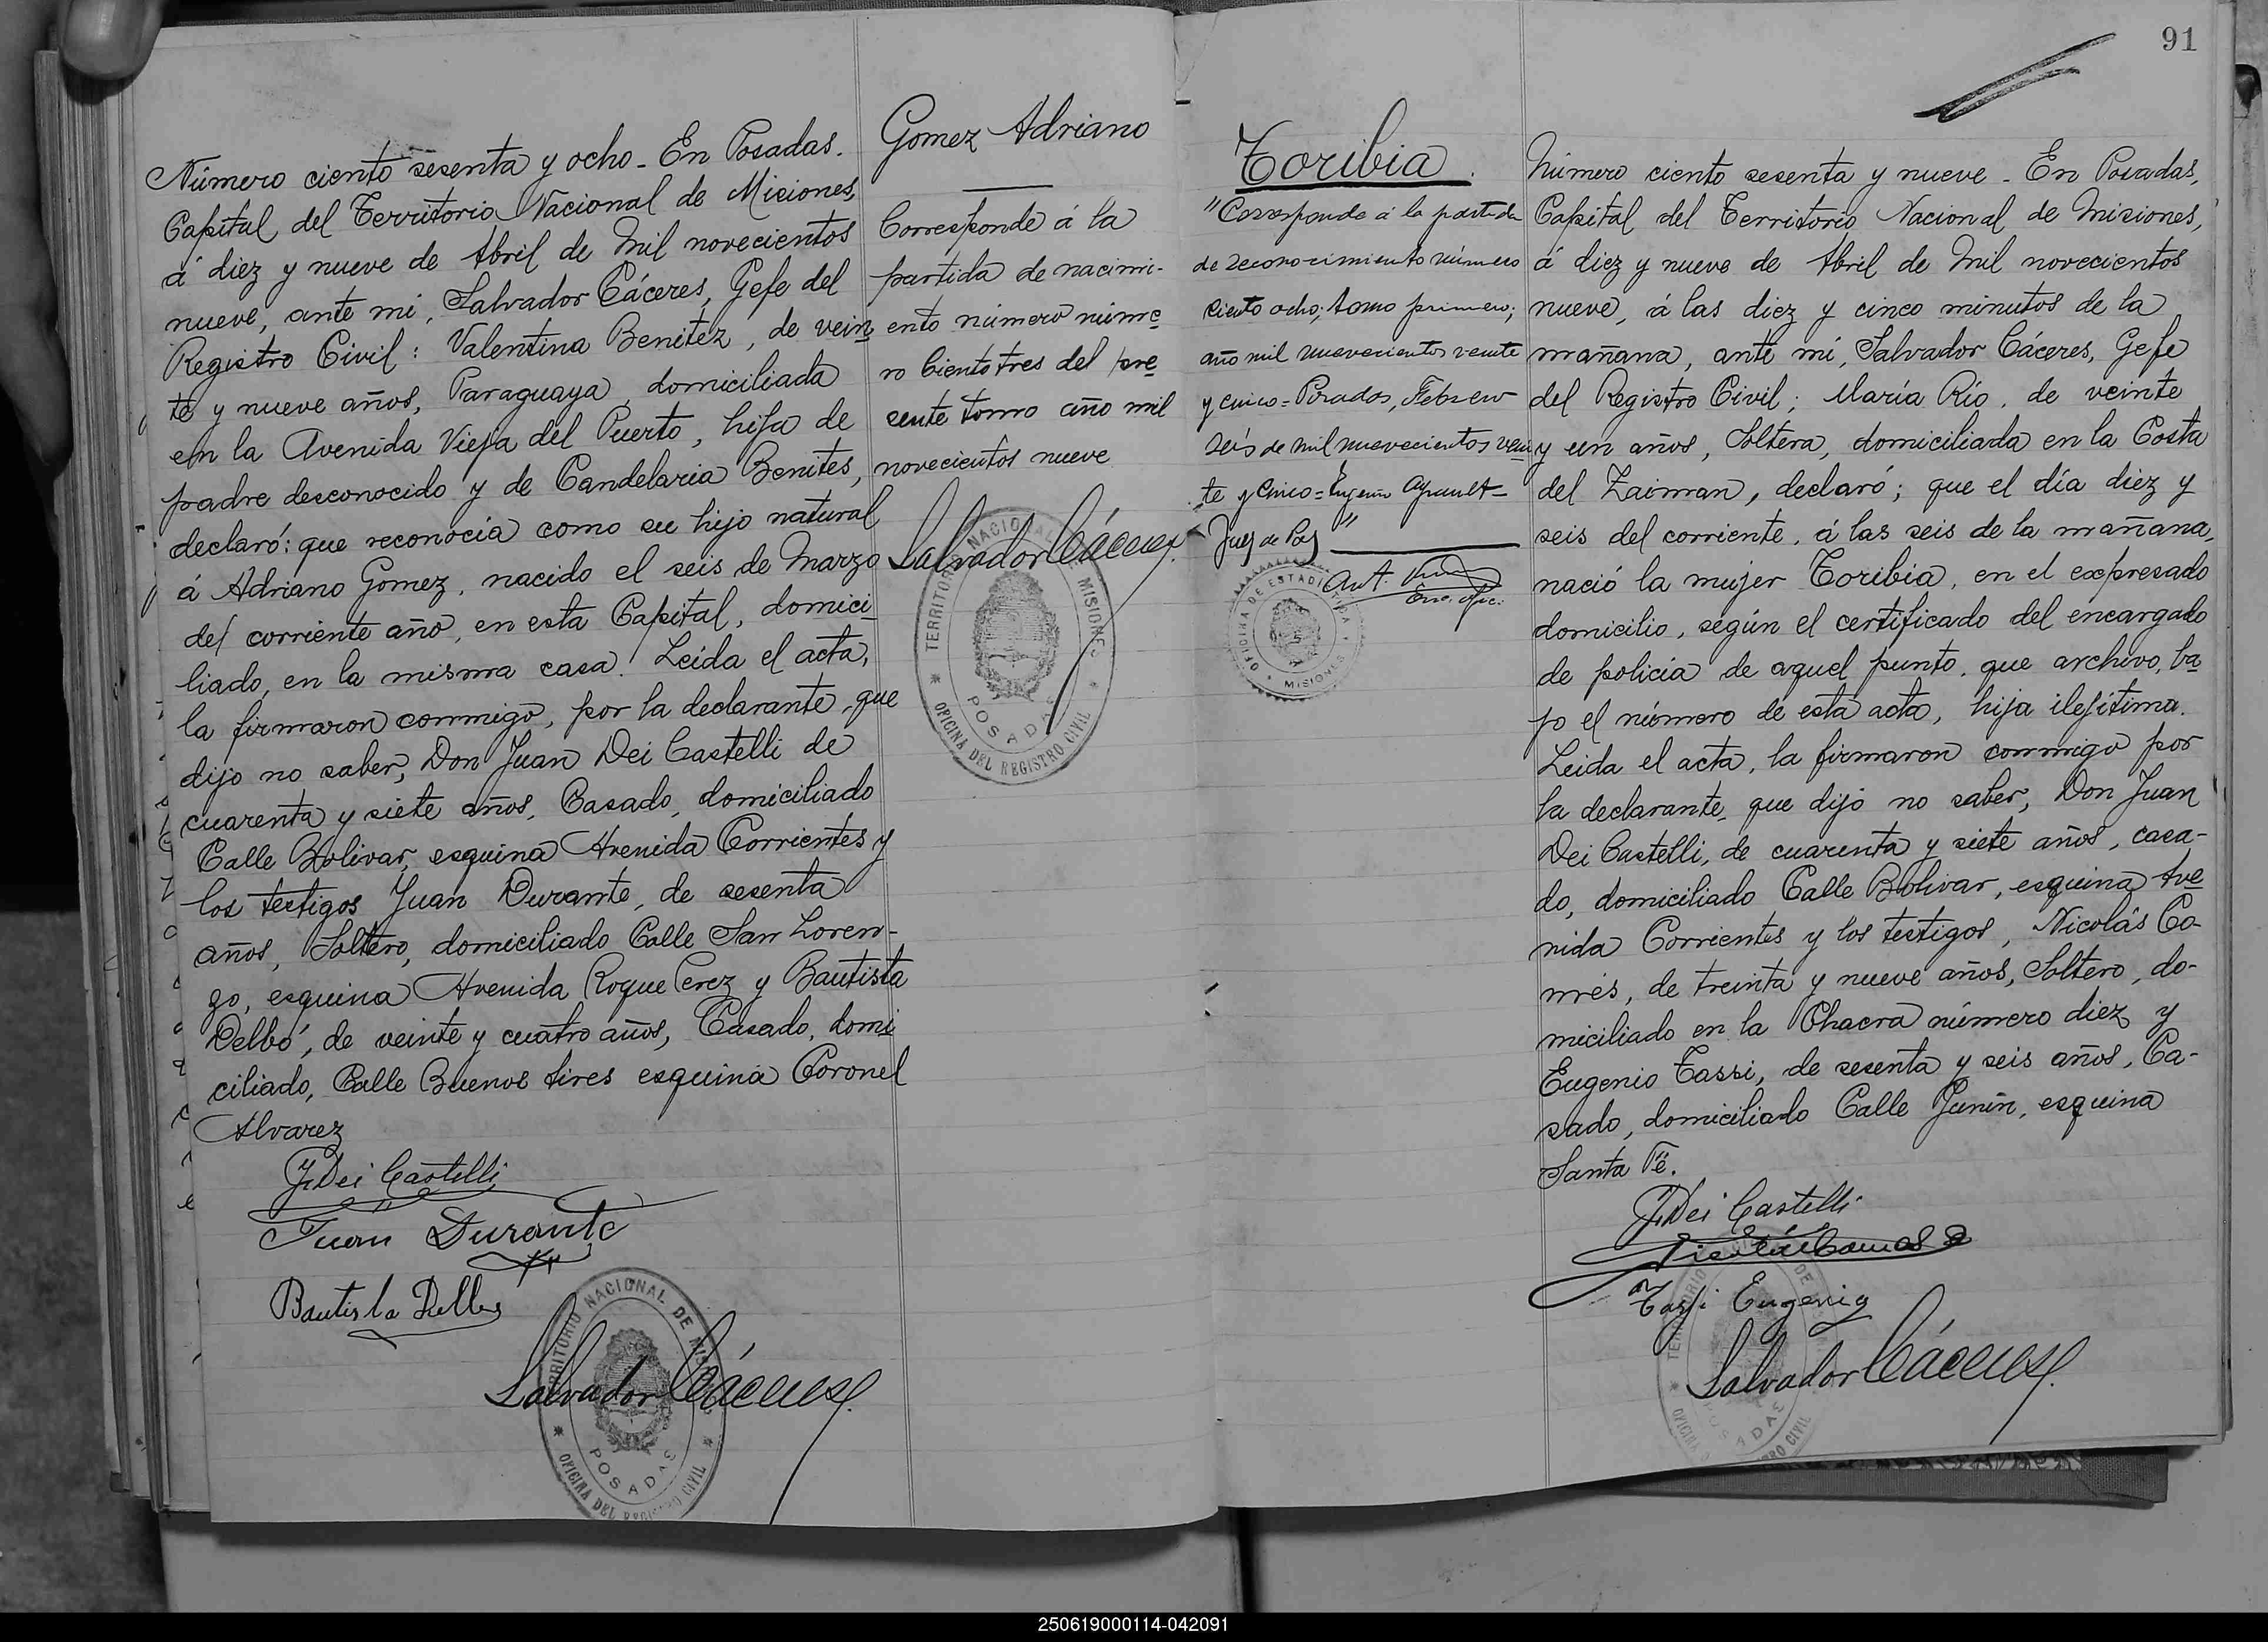 Número ciento sesenta y ocho - En Posadas.
Capital del Territorio Nacional de Misiones,
á diez y nueve de Abril de Mil novecientos
nueve, ante mi, Salvador Cáceres, Gefe del
Registro Civil: Valentina Benitez, de vein
te y nueve años, Paraguaya, domiciliada
en la Avenida Vieja del Puerto, hija de
padre desconocido y de Candelaria Benites,
declaró: que reconocía como su hijo natural
á Adriano Gomez, nacido el seis de Marzo
del corriente año, en esta Capital, domici
liado, en la misma casa. Leida el acta,
la firmaron conmigo, por la declarante, que
dijo no saber, Don Juan Dei Castelli de
cuarenta y siete años, Casado, domiciliado
Calle Bolivar, esquina Avenida Corrientes y
los testigos Juan Durante, de sesenta
años, Soltero, domiciliado Calle San Loren-
zo, esquina Avenida Roque Perez y Bautista
Delbó, de veinte y cuatro años, Casado, domi
ciliado, Calle Buenos Aires esquina Coronel
Alvarez
J. Dei Castelli
Juan Durante
Bautista Delbo
Salvador Cáceres
TERRITORIO NACIONAL DE MISIONES
POSADAS
OFICINA DEL REGISTRO CIVIL
Gomez Adriano
Corresponde á la
partida de nacimi-
ento número núme
ro ciento tres del pre
sente tomo año mil
novecientos nueve
Salvador Cáceres
TERRITORIO NACIONAL DE MISIONES
POSADAS
OFICINA DEL REGISTRO CIVIL
91
Toribia.
"Corresponde á la partida
de reconocimiento número
ciento ocho; tomo primero;
año mil novecientos veinte
y cinco = Posadas, Febrero
seis de mil novecientos vein
te y cinco = Eugenio
Juez de Paz"
OFICINA DE ESTADISTICA Y
MISIONES
Número ciento sesenta y nueve - En Posadas,
Capital del Territorio Nacional de Misiones,
á diez y nueve de Abril de Mil novecientos
nueve, á las diez y cinco minutos de la
mañana, ante mí, Salvador Cáceres, Gefe
del Registro Civil; María Río, de veinte
y un años, Soltera, domiciliada en la Costa
del Zaiman, declaró; que el día diez y
seis del corriente, á las seis de la mañana,
nació la mujer Toribia, en el expresado
domicilio, según el certificado del encargado
de policía de aquel punto, que archivo, ba
jo el número de esta acta, hija ilejítima.
Leida el acta, la firmaron conmigo por
la declarante, que dijo no saber, Don Juan
Dei Castelli, de cuarenta y siete años, casa-
do, domiciliado Calle Bolivar, esquina Ave
nida Corrientes y los testigos, Nicolás Co-
més, de treinta y nueve años, Soltero, do-
miciliado en la Chacra número diez y
Eugenio Tassi, de sesenta y seis años, Ca-
sado, domiciliado Calle Junín, esquina
Santa Fé.
J. Dei Castelli
Tassi Eugenio
Salvador Cáceres
POSADAS
250619000114-042091